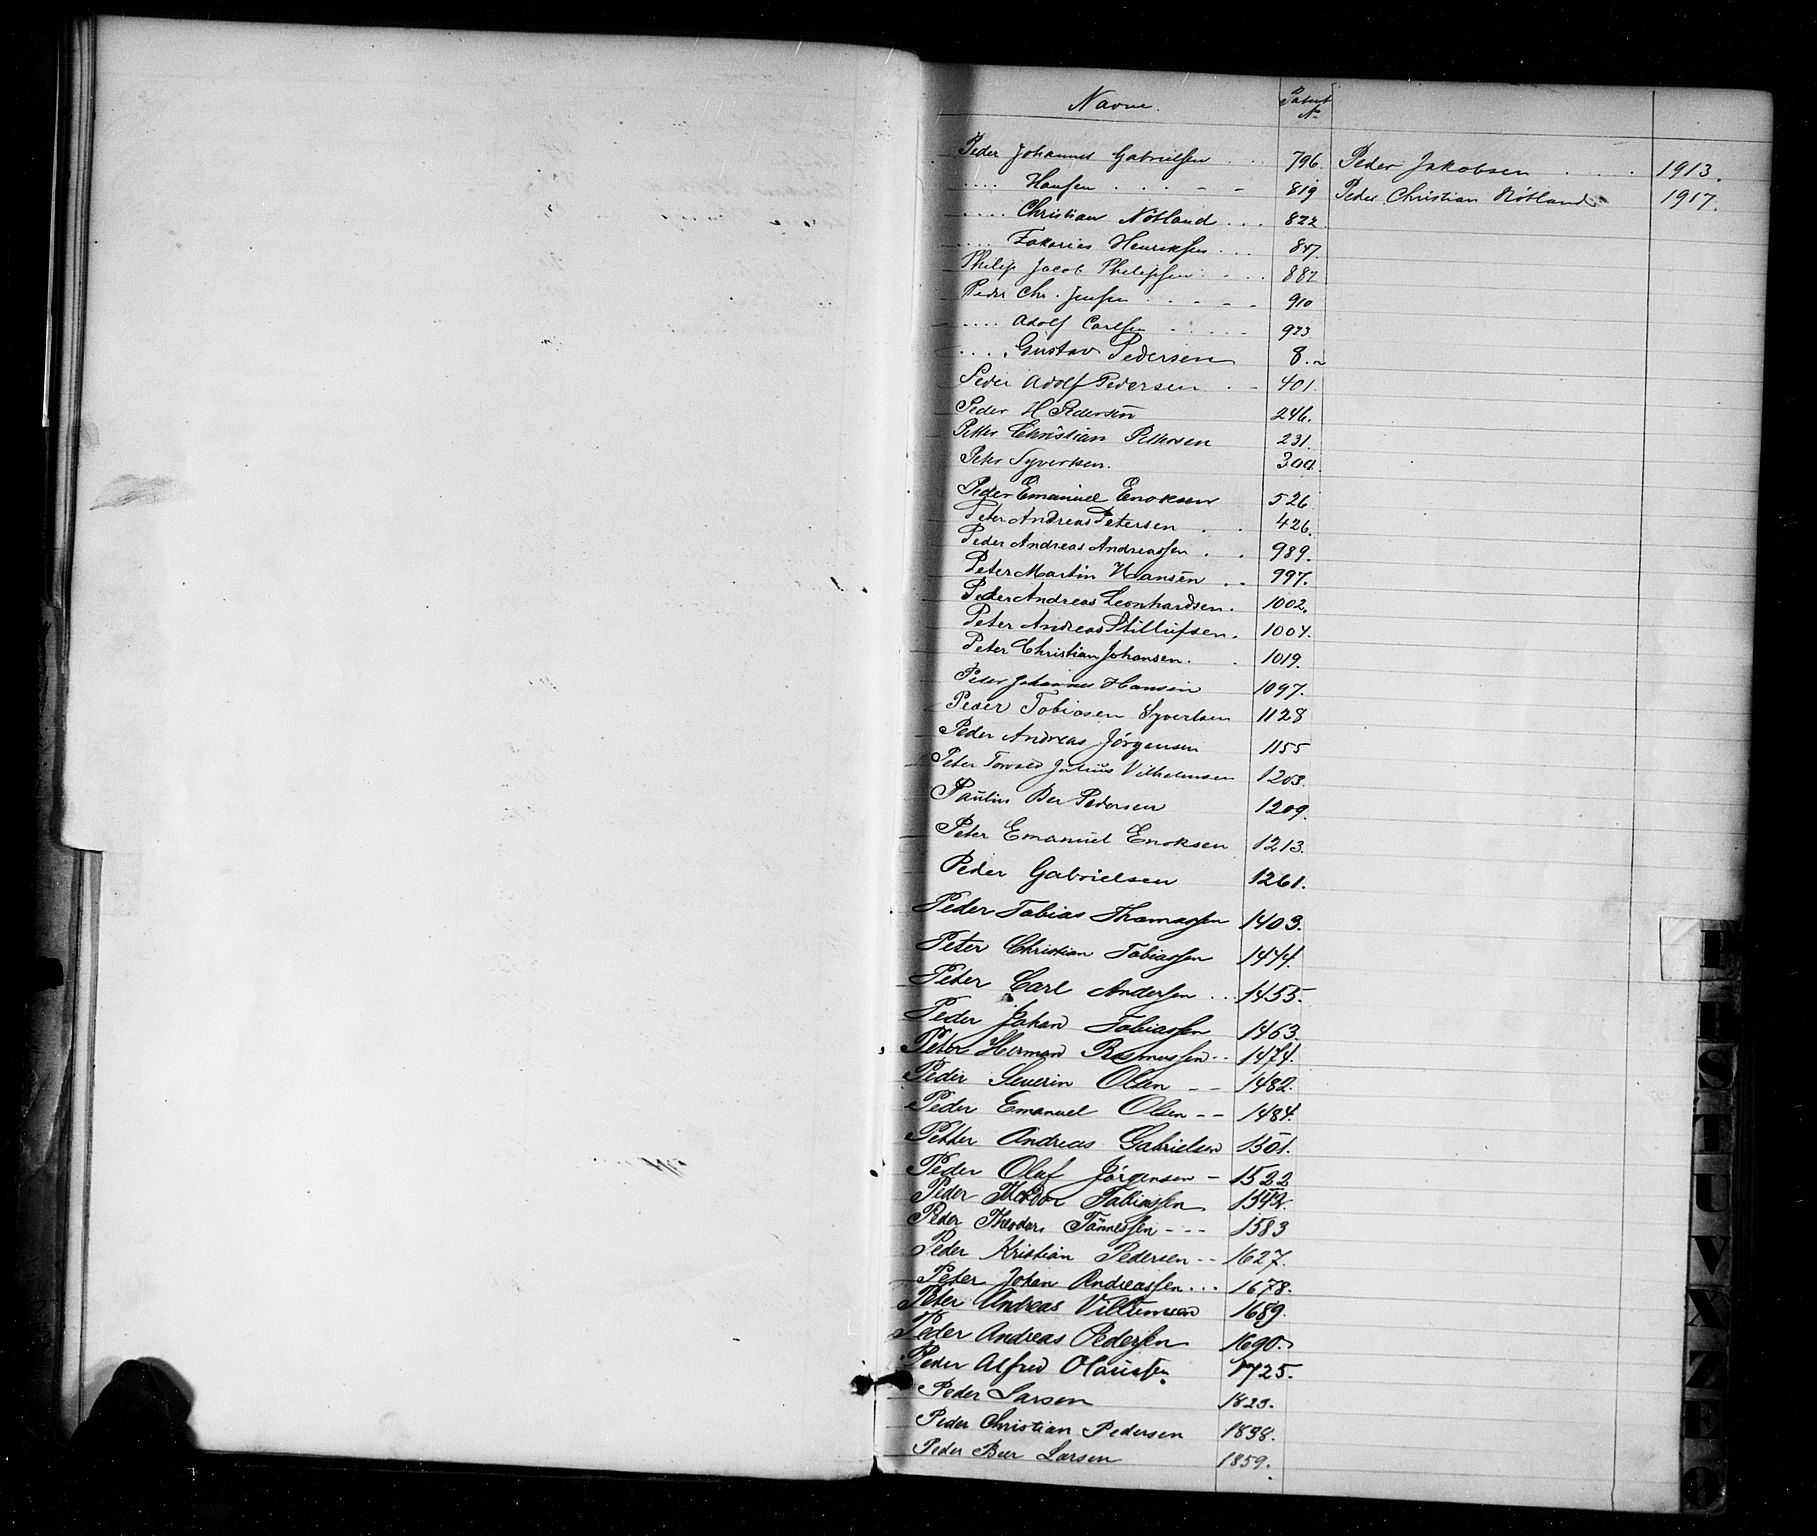 Navne. Patent No
Peder Johannes Gabrielsen . . . 796.
.... Hansen . . . - - 819
.... Christian Nötland . . . 822.
.... Zakarias Henriksen . . . 847.
Philip Jacob Philipsen . . . 887
Peder Chr. Jensen . . - - - 910
.... Adolf Carlsen . . . . . 923.
.... Gustav Pedersen 8.
Peder Adolf Pedersen . - 401.
Peder H Pedersen 246.
Petter Christian Pettersen 231.
Peter Syvertsen. 300.
Peder Emanuel Enoksen 526
Peter Andreas Petersen . . 426.
Peder Andreas Andreassen . . 989.
Peter Martin Hansen . . 997.
Peder Andreas Leonhardsen. 1002.
Peter Andreas Stillufsen. 1004.
Peter Christian Johansen. . 1019.
Peder Johannes Hansen 1097.
Peder Tobiasen Syvertsen 1128
Peder Andreas Jörgensen 1155
Peter Torvald Julius Vilhelmsen 1203.
Paulus Ber Pedersen 1209.
Peter Emanuel Enoksen 1213.
Peder Gabrielsen 1261.
Peder Tobias Thomassen 1403.
Peter Christian Tobiassen 1444.
Peter Carl Andersen . . 1455.
Peder Johan Tobiassen 1463.
Peter Herman Rasmussen - - 1474.
Peder Severin Olsen - - 1482.
Peder Emanuel Olsen - - 1484.
Petter Andreas Gabrielsen 1501.
Peder Olaf Jörgensen - 1522
Peder Tobiassen 1542.
Peder Theodor Tönnessen - - - 1583
Peder Kristian Pedersen - - 1627.
Peter Johan Andreassen . . . 1678.
Peter Andreas Villumsen 1689.
Peder Andreas Pedersen 1690.
Peder Alfred Olaussen. 1725.
Peder Larsen 1823.
Peder Christian Pedersen 1838.
Peder Beer Larsen 1859.
Peder Jakobsen . . . . 1913.
Peder Christian Nötland 1917.
R
S
T
U
V
X
Z
Æ
Ø